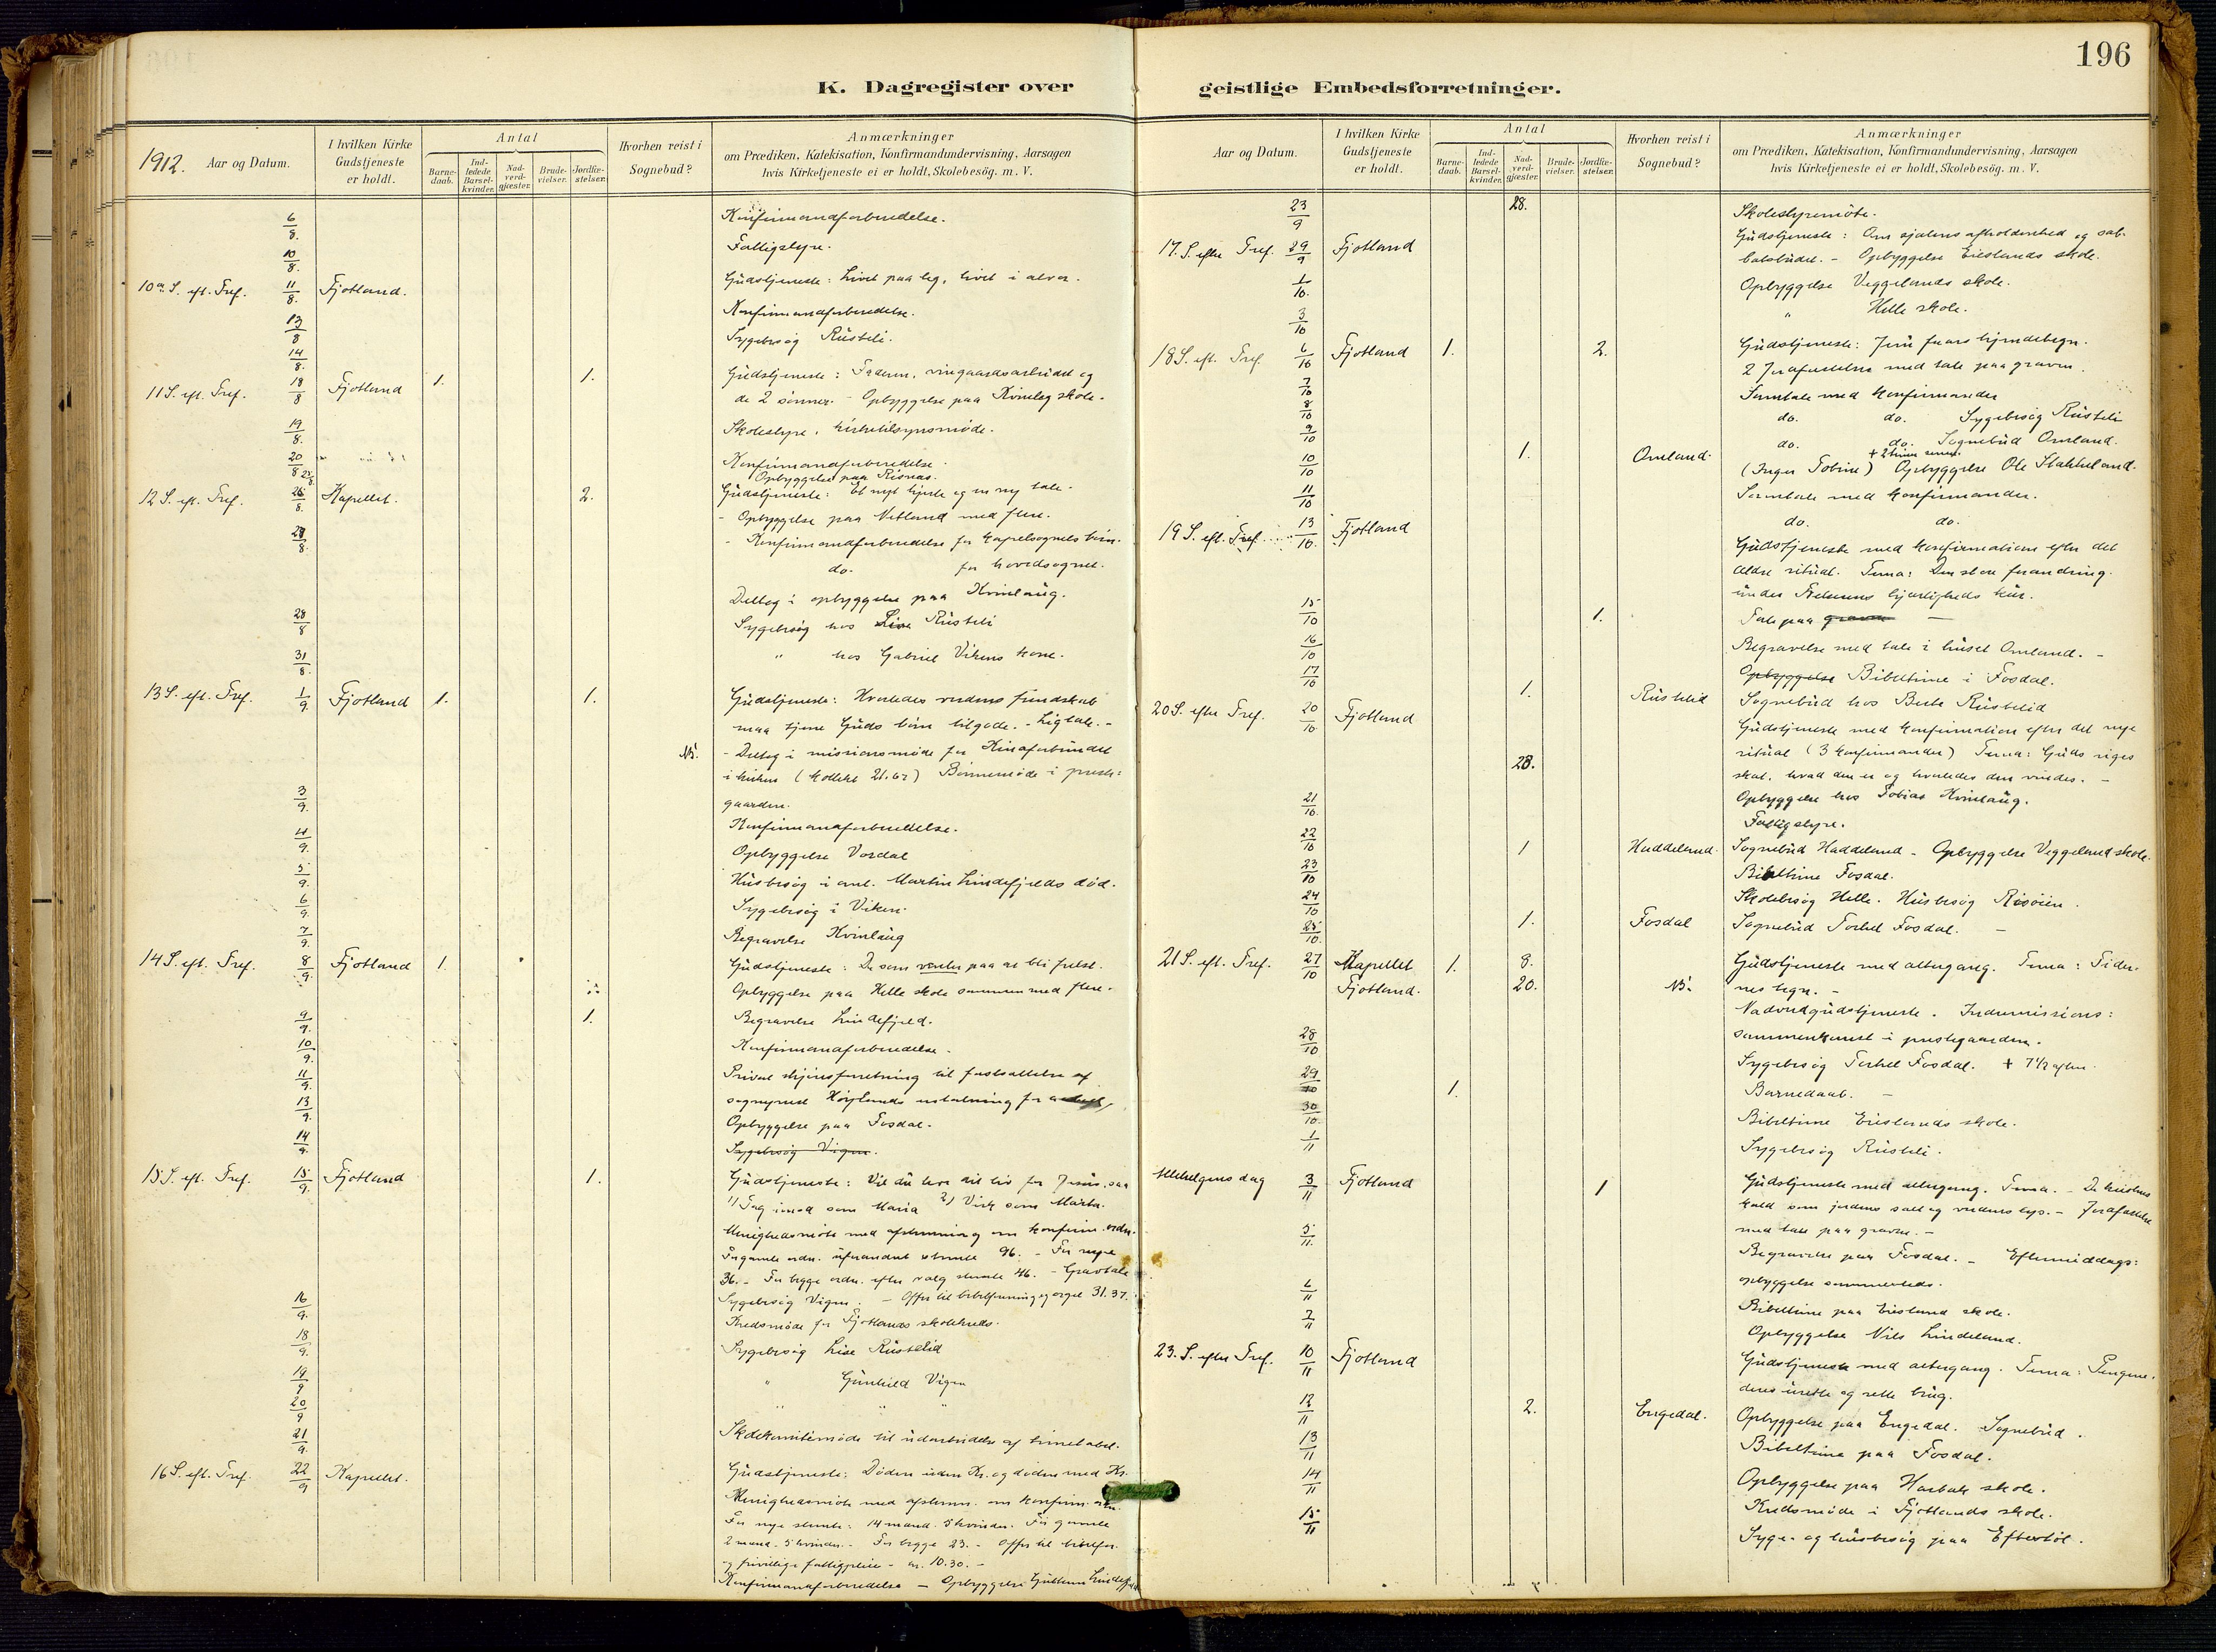 196
K. Dagregister over geistlige Embedsforretninger.
1912. Aar og Datum.
I hvilken Kirke Gudstjeneste er holdt.
Antal
Barnedaab.
Indledede Barselkvinder.
Nadverdgjæster.
Brudevielser.
Jordfæstelser.
Hvorhen reist i Sognebud?
Anmærkninger
om Prædiken, Katekisation, Konfirmandundervisning, Aarsagen
hvis Kirketjeneste ei er holdt, Skolebesøg. m. V.
6/8. Konfirmandforberedelse.
10/8. Fattigstyre.
10de S. eft. Tref. 11/8. Fjotland. Gudstjeneste: Livet paa leg, livet i alvor.
13/8 Konfirmandforberedelse.
14/8. Sygebesøg Rusteli.
11 S. eft. Tref. 18/8 Fjotland 1. 1. Gudstjeneste: Faderen, vingaardsarbeidet og
de 2 sønner. - Opbyggelse paa Kvinlog skole.
19/8. Skolestyre, kirketilsynsmøde.
20/8 Konfirmandforberedelse.
Opbyggelse paa Risnæs.
12 S. eft. Tref. 25/8. Kapellet. 2. Gudstjeneste: Et nyt hjerte og en ny tale.
- Opbyggelse paa Netland med flere.
27/8. - Konfirmandforberedelse for kapelsognets børn.
do. for hovedsognet.
Deltog i opbyggelse paa Kvinlaug.
28/8 Sygebesøg hos Lise Rusteli
31/8. " hos Gabriel Vikens kone.
13 S. eft. Tref. 1/9. Fjotland 1. 1. Gudstjeneste: Hvorledes verdens fiendskab
maa tjene Guds børn tilgode. - Ligtale. -
NB. - Deltog i missionsmøde for Kinaforbundet
i kirken (kollekt 21.62) Bønnemøde i preste:
gaarden.
3/9. Konfirmandforberedelse.
4/9. Opbyggelse Vordal
5/9. Husbesøg i anl. Martin Lindefjelds død.
6/9. Sygebesøg i Viken.
7/9. Begravelse Kvinlaug
14 S. eft. Tref. 8/9. Fjotland 1. Gudstjeneste: De som venter paa at bli frelst.
Opbyggelse paa Helle skole sammen med flere.
9/9. 1. Begravelse Lindefjeld.
10/9. Konfirmandforberedelse.
11/9. Privat skjønsforretning til fastsættelse af
13/9. sogneprest Højlunds
Opbyggelse paa Fosdal.
14/9. Sygebesøg Vigen.
15 S. eft. Tref. 15/9. Fjotland 1. Gudstjeneste: Vil du leve dit liv for Jesus, saa
1) Tag imod som Maria 2) Virk som Martha.
Menighedsmøte med afstemning om konfirm. ordn.
For gamle ordn. uforandret stemte 96. - For nye
36. - For begge ordn. efter valg stemte 46. - Gravtale
Sygebesøg Vigen. - Offer til bibelforening og orgel 31.37.
16/9. Kredsmøde for Fjotlands skolekreds.
18/9. Sygebesøg Lise Rustelid
19/9 " Gunhild Vigen
20/9 " " "
21/9. Skolekomitemøde til udarbeidelse af timetabel.
16 S. eft. Tref. 22/9 Kapellet. Gudstjeneste: Døden uden Kr. og døden med Kr.
Menighedsmøte med afstemn. om konfirm. ordn.
For nye stemte: 14 mænd. 5 kvinder. For gamle
2 mænd. 5 kvinder. - For begge 23. - Offer til bibelfor.
og frivillige fattigpleie - kr. 10.30. -
Konfirmandforberedelse - Opbyggelse Lindefjeld
Aar og Datum.
I hvilken Kirke Gudstjeneste er holdt.
Antal
Barnedaab.
Indledede Barselkvinder.
Nadverdgjæster.
Brudevielser.
Jordfæstelser.
Hvorhen reist i Sognebud?
Anmærkninger
om Prædiken, Katekisation, Konfirmandundervisning, Aarsagen
hvis Kirketjeneste ei er holdt, Skolebesøg. m. V.
23/9 28. Skolestyremöte.
17. S. efter Tref. 29/9 Fjotland Gudstjeneste: Om sjælens afholdenhed og sab-
batsbudet. - Opbyggelse Eieslands skole.
1/10. Opbyggelse Veggelands skole.
3/10 " Helle skole.
18 S. eft. Tref 6/10 Fjotland 1. 2. Gudstjeneste: Jesu faars kjendetegn.
2 Jordfæstelser med tale paa graven.
7/10 Samtale med konfirmander
8/10 do. do. Sygebesøg Rusteli
9/10 do. do. Sognebud Omland.
+ 2 timer senere.
10/10 1. Omland. (Inger Tobine) Opbyggelse Ole Stakkeland.
11/10 Samtale med konfirmander.
do. do.
19 S. eft. Tref. 13/10. Fjotland Gudstjeneste med konfirmation efter det
ældre ritual. Tema: Den store forandring
under Frelserens kjærligheds kur.
15/10 1. Tale paa graven -
16/10 Begravelse med tale i huset Omland. -
17/10 Opbyggelse Bibeltime i Fosdal.
1. Rustelid Sognebud hos Berte Rustelid
20 S. efter Tref. 20/10. Fjotland Gudstjeneste med konfirmation efter det nye
ritual (3 konfirmander) Tema: Guds riges
28. skat, hvad den er og hvorledes den vindes. -
21/10. Opbyggelse hos Tobias Kvinlaug.
Fattigstyre.
22/10 1 Haddeland. Sognebud Haddeland - Opbyggelse Veggeland skole.
23/10 Bibeltime Fosdal.
24/10 Skolebesøg Helle. Husbesøg Risøien.
25/10. 1. Fosdal Sognebud Torkel Fosdal. -
21 S. eft. Tref. 27/10 Kapellet 1. 8. Gudstjeneste med altergang. Tema: Tider-
Fjotland. 20. NB. nes tegn. -
Nadverdgudstjeneste. Indremissions:
28/10 sammenkomst i prestegaarden.
Sygebesøg Torkel Fosdal. + 7 1/2 aften.
29/10 1. Barnedaab. -
30/10. Bibeltime Eieslands skole.
1/11 Sygebesøg Rusteli.
Allehelgensdag 3/11 Fjotland 1 Gudstjeneste med altergang. Tema. - De kristnes
kald som jordens salt og verdens lys. - Jordfæstelse
med tale paa graven. -
5/11. Begravelse paa Fosdal. - Eftermiddags:
opbyggelse sammesteds.
6/11 Bibeltime paa Eiesland skole.
7/11 Opbyggelse Nils Lindeland.
23. S. efter Tref. 10/11 Fjotland Gudstjeneste med altergang. Tema: Pengene,
deres urette og rette brug.
12/11 2. Engedal. Opbyggelse paa Engedal. Sognebud.
13/11 Bibeltime paa Fosdal.
14/11 Opbyggelse paa Harbak skole.
15/11 Kredsmøde i Fjotlands skole.
Syge- og husbesøg paa Eftestöl.